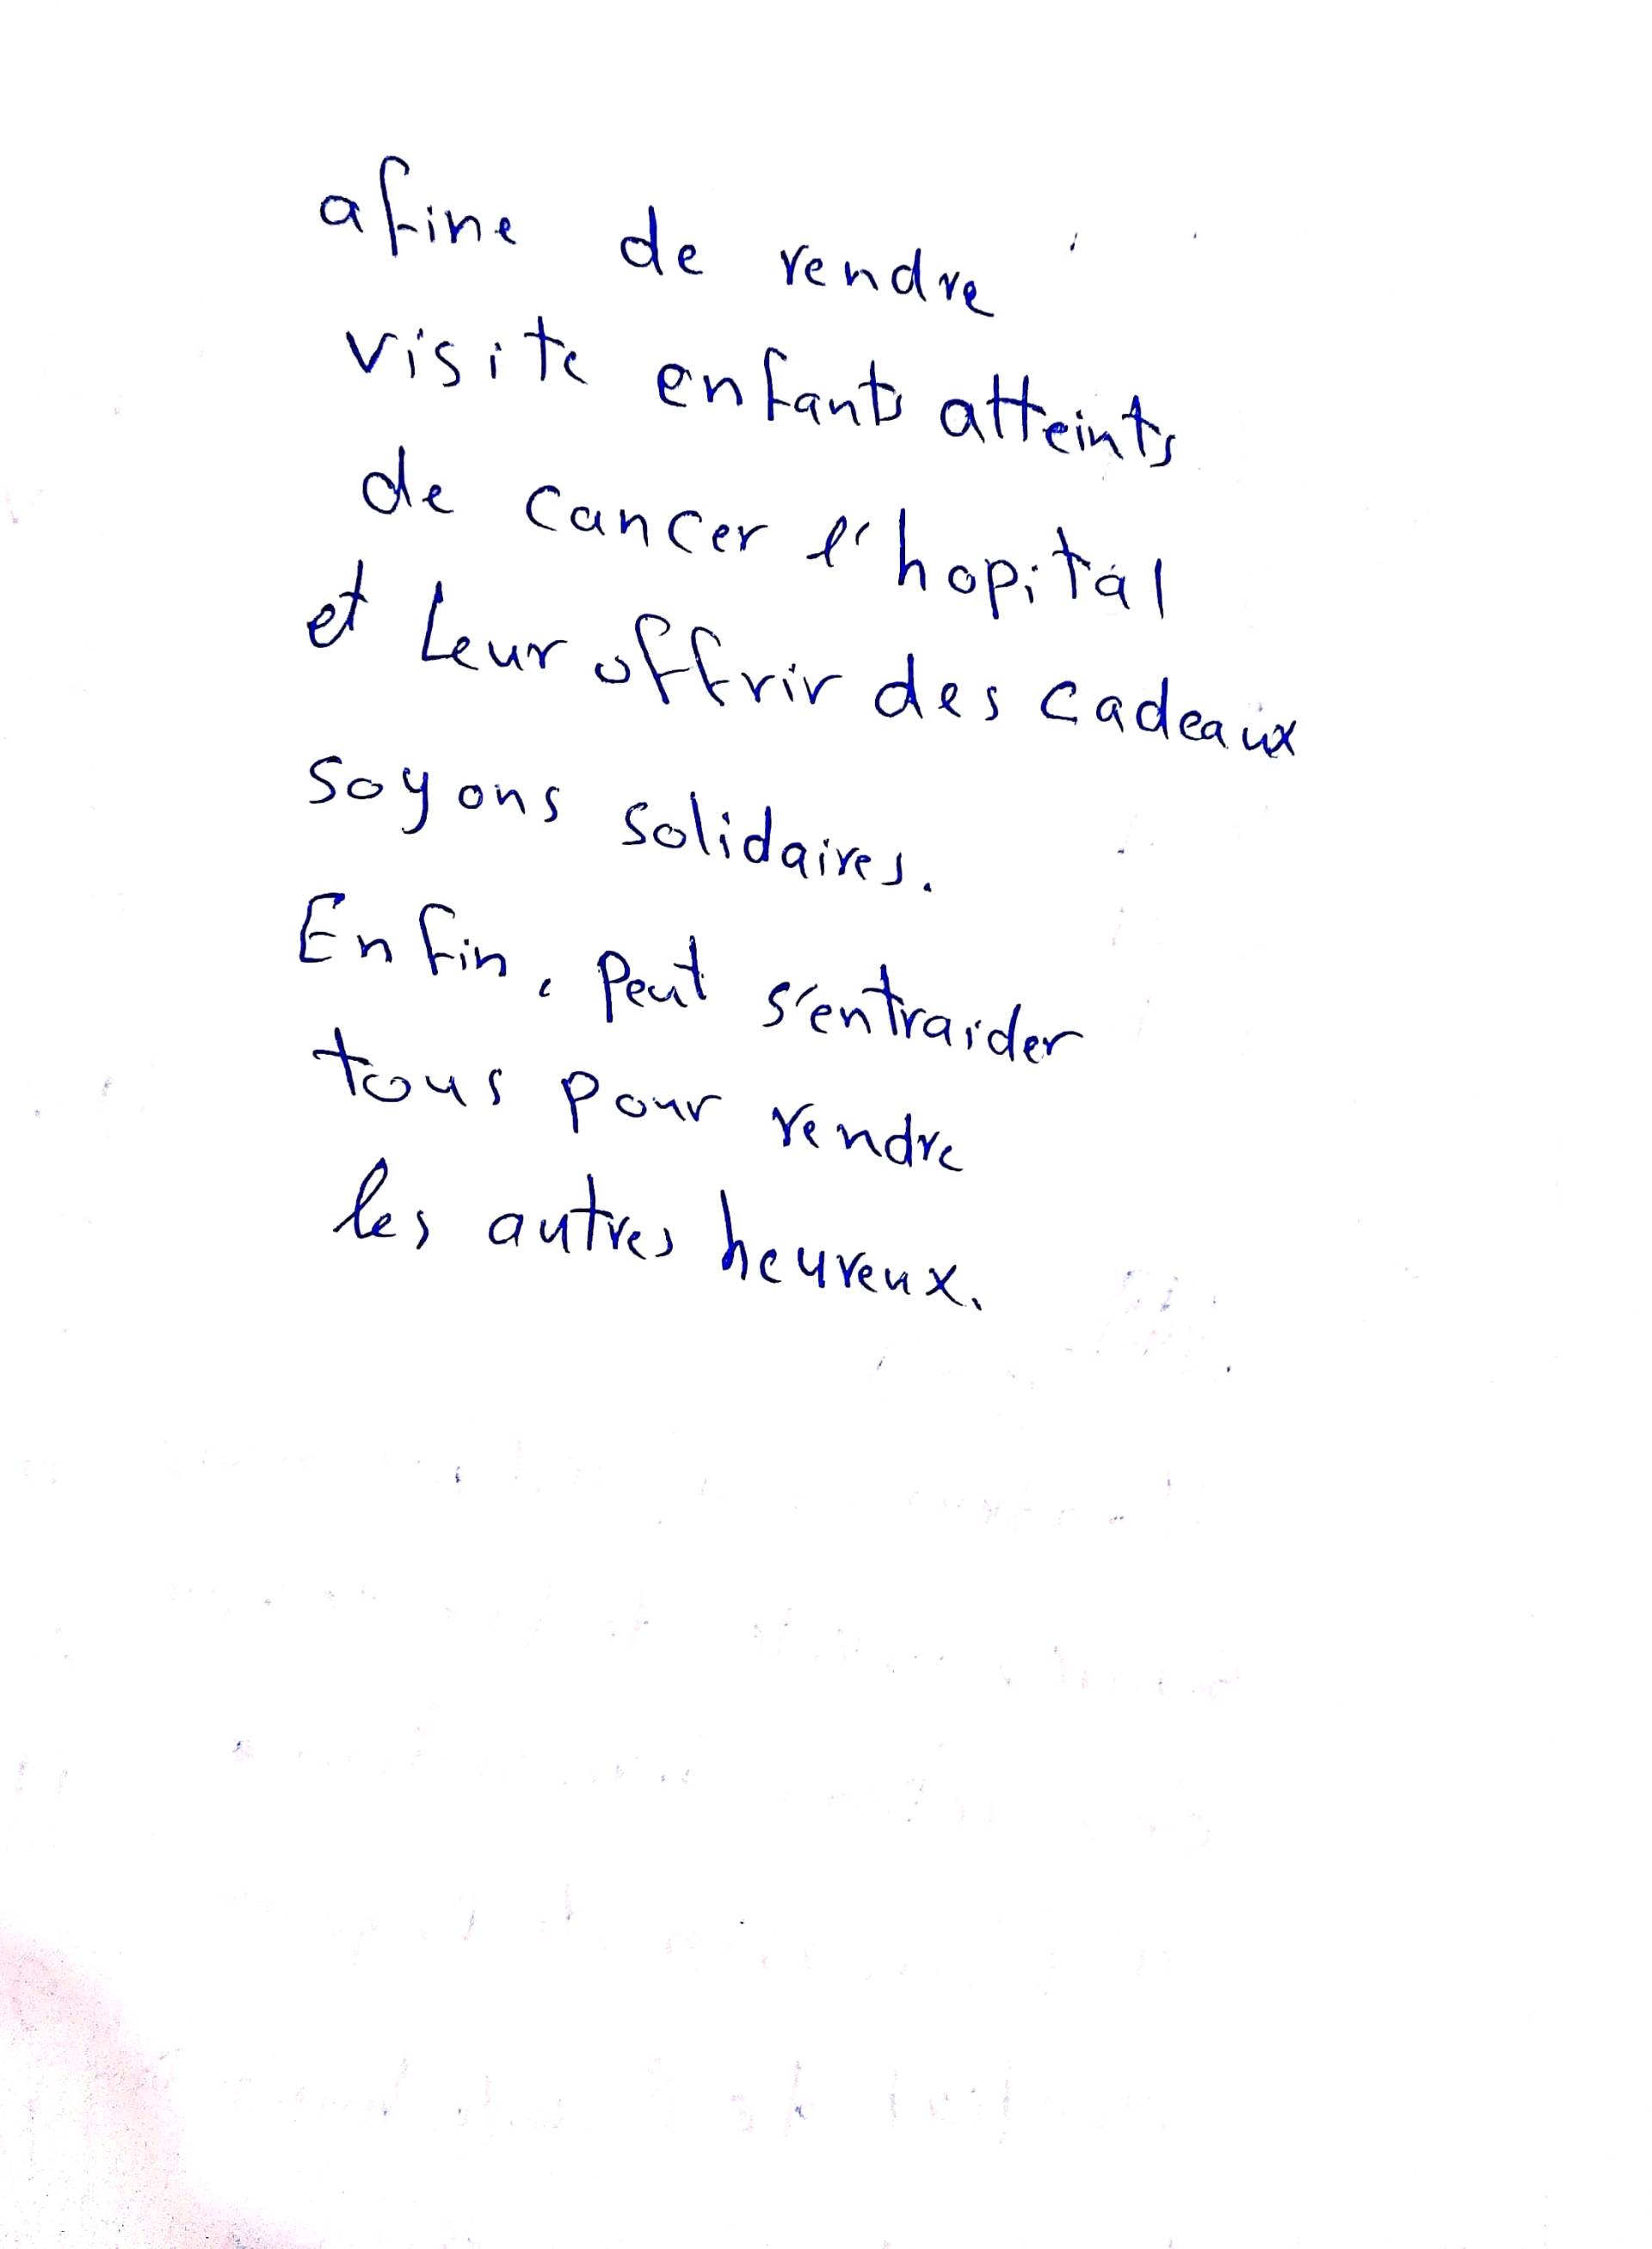 afine de rendre
visite enfants atteints
de cancer l'hopital
et Leur offrir des cadeaux
soyons solidaires.
Enfin, Peut s'entraider
tous pour rendre
les autres heureux.